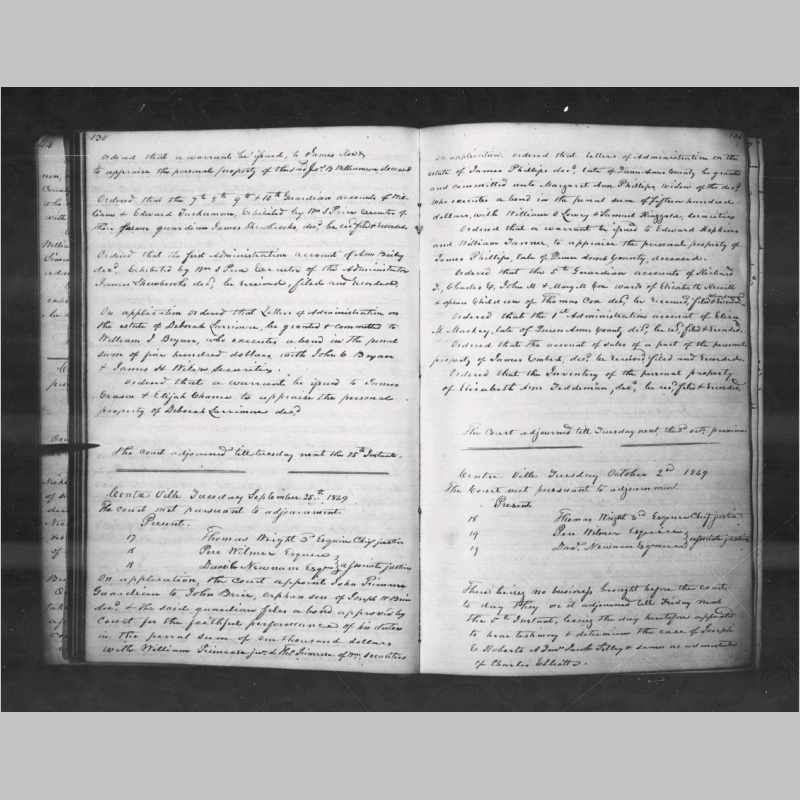 130
Ordered that a warrant be issued, to James
to appraise the personal property of Jos. B. Williamson deceased
Ordered that the 7th 8th 9th & 10th Guardian accounts of William & Edward Tuchanan, exhibited by Wm S Price executor of
their former guardian James Shawhocks, decd. be recd filed & recorded.
Ordered that the first Administration account of Ann
decd. Exhibited by Wm S Price Executor of the Administrator
James decd, be received, filed and recorded.
On application ordered that Letters of Administration on
the estate of Deborah Larrimore, be granted & committed to
William J Bryan, who executes a bond in the penal
sum of five hundred dollars with John C Bryan
& James H Wilson Securities.
Ordered that a warrant be issued to James
& Elijah Chance to appraise the personal
property of Deborah Larrimore decd
The Court adjourned till tuesday next the 25th Instant.
Centre Ville Tuesday September 25th 1849
The court met pursuant to adjournment.
Present
17 Thomas Wright 3d Esquire Chief justice
16 Pere Wilmer Esquire
18 Newnam Esqrs associate justices
On application, the court appoint John Primrose
Guardian to John Brice, orphan son of Joseph W Brice
decd & the said guardian files a bond approved by
Court for the faithful performance of his duties
in the penal sum of one thousand dollars
with William Primrose jr. & Primrose of Wm securities
On application ordered that letters of Administration on the
estate of James Phillips decd. late of Queen Anns County be granted
and committed unto Margaret Ann Phillips, widow of the decd
who executes a bond in the penal sum of fifteen hundred
dollars, with William S Lowry & Samuel Ringgold, securities
Ordered that a warrant be issued to Edward Hopkins
and William Tarner, to appraise the personal property of
James Phillips, late of Queen Anns County, deceased.
Ordered that the 5th Guardian accounts of Richard
J, Charles C, John M & Mary M Cox wards of Elizabeth
orphan Children of Thomas Cox decd, be received, filed & recorded.
Ordered that the 1st Administration account of Eliza
M. Mackey, late of Queen Anns County, decd, be recd, filed & recorded.
Ordered that the account of sales of a part of the personal
property of James decd. be received filed and recorded.
Ordered that the Inventory of the personal property
of Elizabeth Ann Teddeman, decd, be recd, filed & recorded
The Court adjourned till Tuesday next the 2d octr. proximo
Centre Ville Tuesday October 2nd 1849
The Court met pursuant to adjournment
Present
18 Thomas Wright 3d Esquire Chief justice
19 Pere Wilmer Esquire
19 Newnam Esquire associate justices
There being no business brought before the court
to day they do it adjourned till Friday next
the 5th Instant, being the day heretofore appointed
to hear testimony & determine the case of Joseph
C Roberts & Tilley & James as administrators
of Charles Elliott.